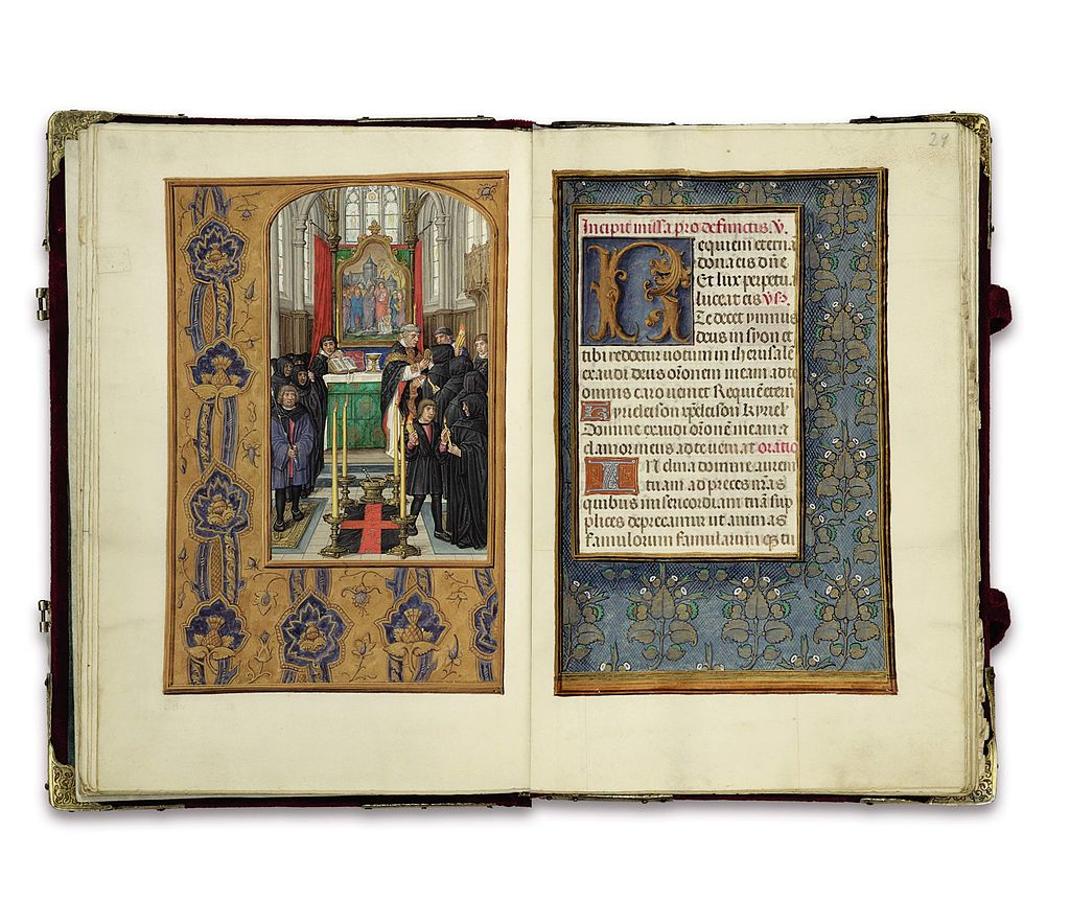 29
Incipit missa pro defunctis. V.
Requiem eterna
dona eis dñe
Et lux perpetua
luceat eis Vs.
Te decet ymnus
deus in syon et
tibi reddetur uotum in iherusalē
exaudi deus orōnem meam ad te
omnis caro ueniet Requiē etern
Kyrieleison xp̄eleison kyriel
Domine exaudi orōnē meam a
clamor meus ad te ueniat oratio
Inclina domine aurem
tuam ad preces nr̄as
quibus misericordiam tuā sup
plices deprecamur ut animas
famulorum famularum q̄ tu